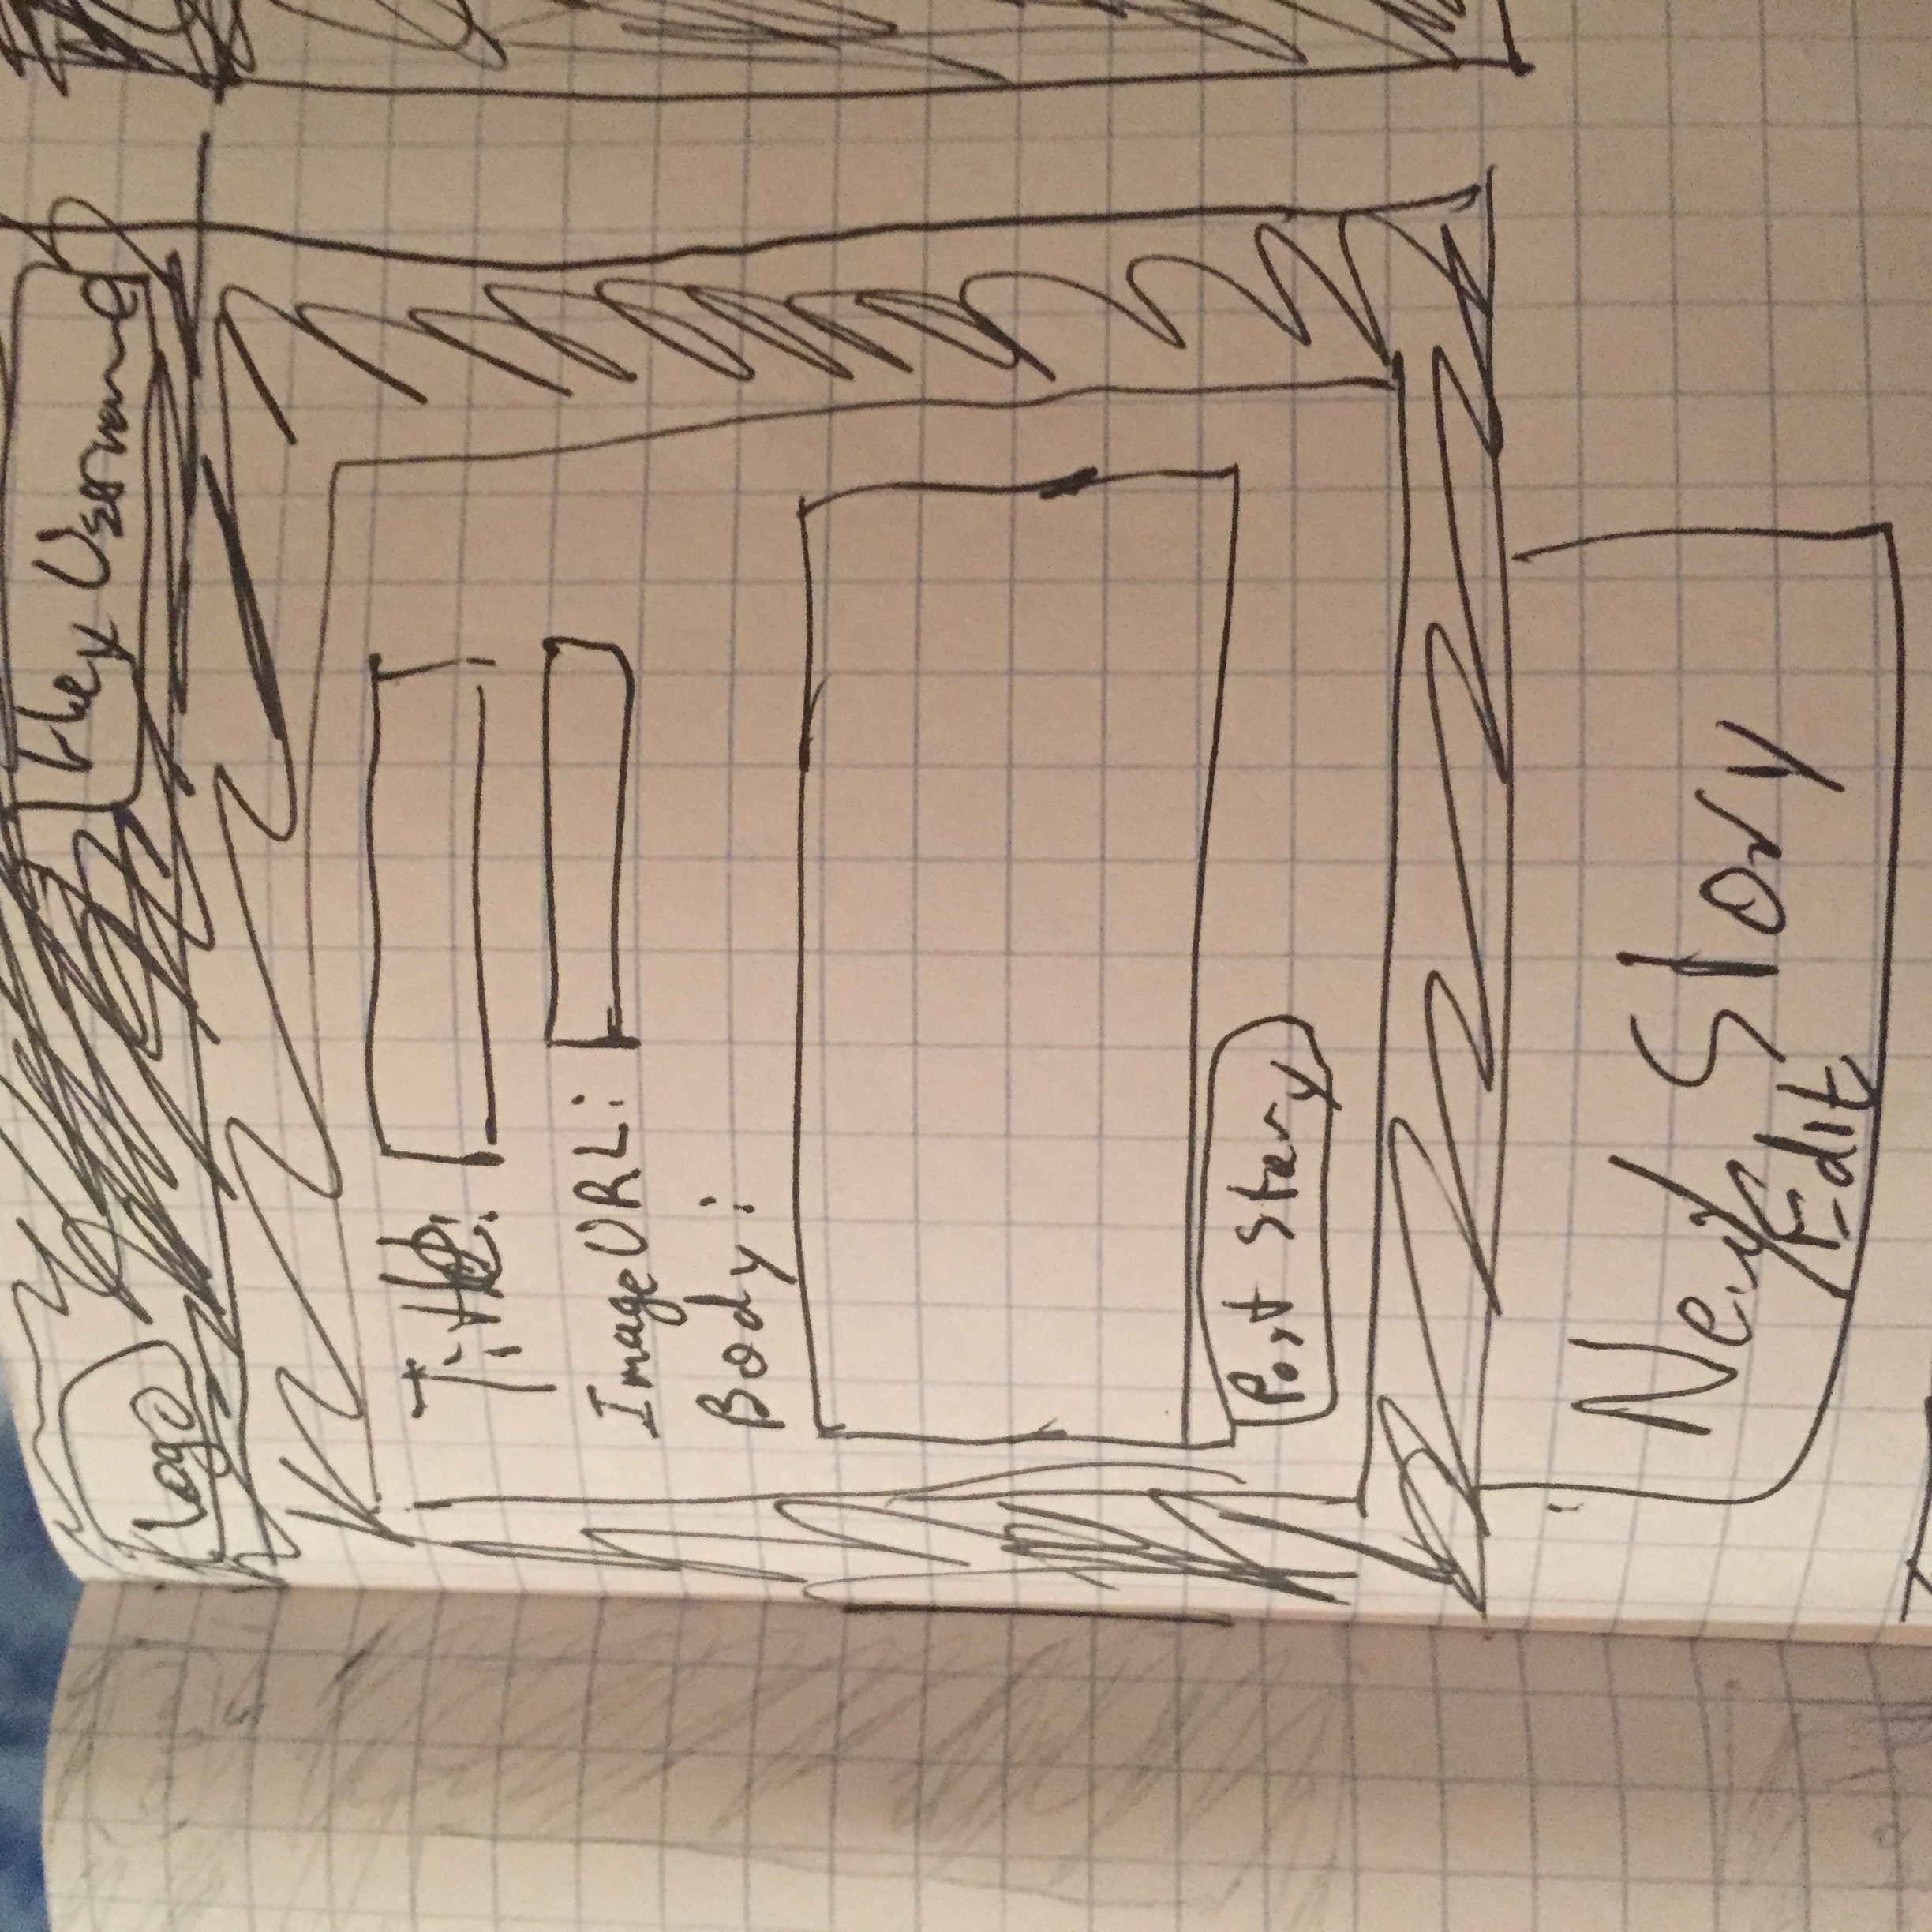 Logo
Hey Username
Title:
Image URL:
Body:
Post Story
New/Edit Story